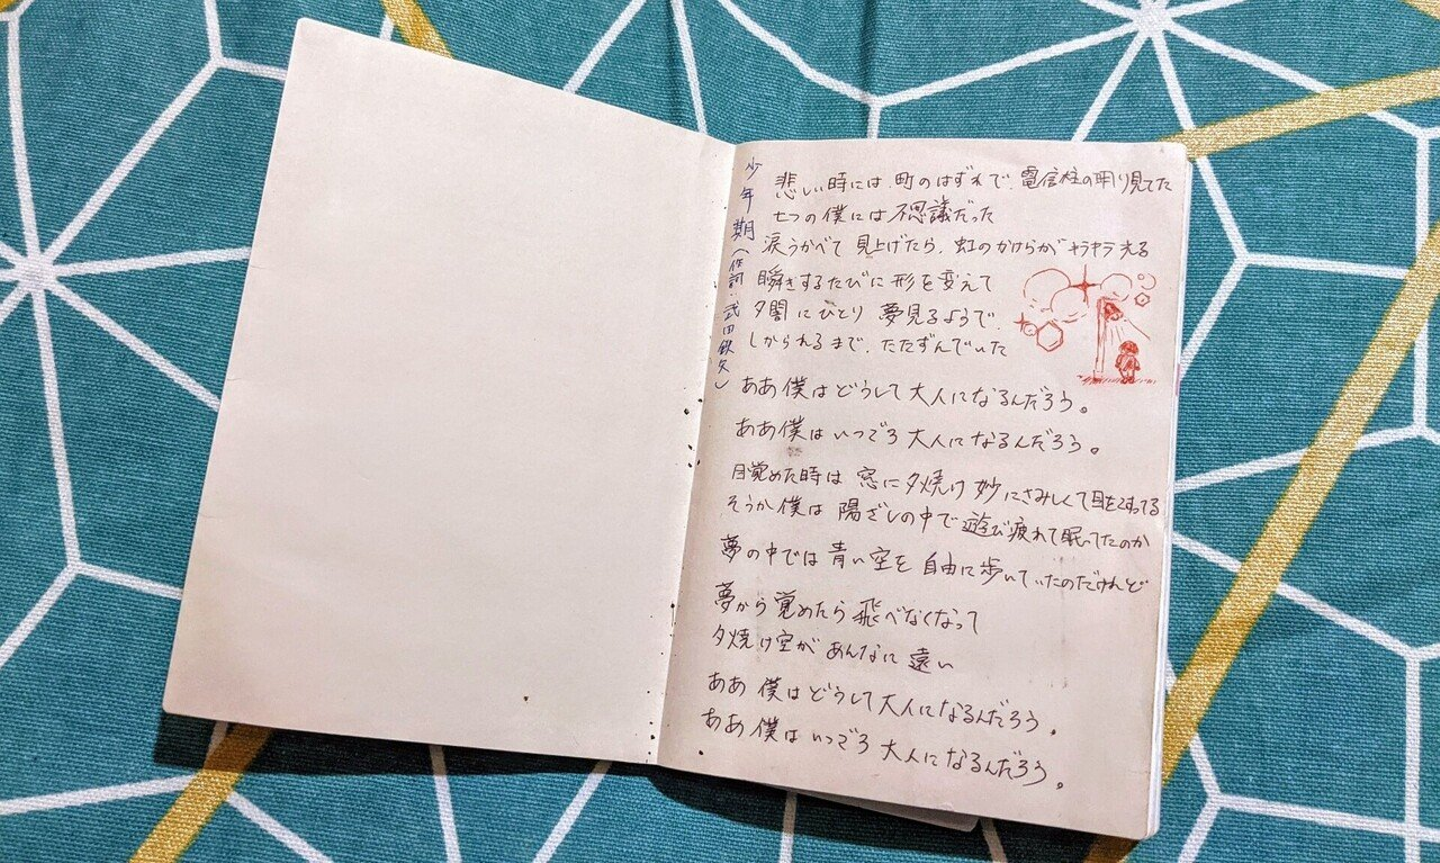 少年期(作詞・武田鉄矢)
悲しい時には、町のはずれで、電信柱の明り見てた
七つの僕には不思議だった
涙うかべて見上げたら、虹のかけらがキラキラ光る
瞬きするたびに形を変えて
夕闇にひとり夢見るようで、
しかられるまで、たたずんでいた
ああ僕はどうして大人になるんだろう。
ああ僕はいつごろ大人になるんだろう。
目覚めた時は窓に夕焼け妙にさみしくて目をこすってる
そうか僕は陽ざしの中で遊び疲れて眠ってたのか
夢の中では青い空を自由に歩いていたのだけれど
夢から覚めたら飛べなくなって
夕焼け空があんなに遠い
ああ僕はどうして大人になるんだろう。
ああ僕はいつごろ大人になるんだろう。